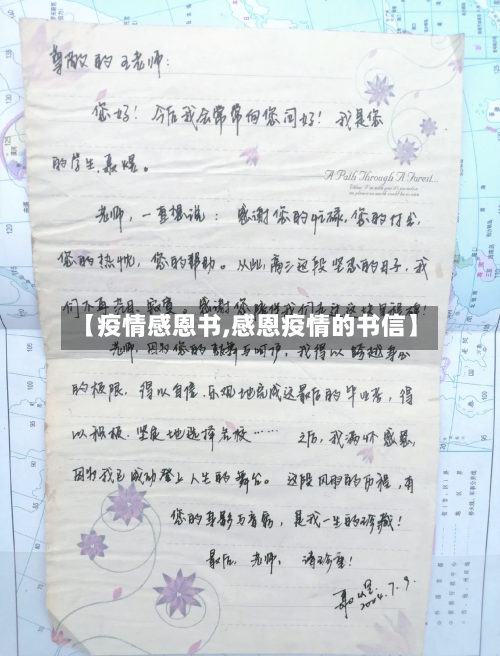 尊敬的王老师：
您好！今后我会常常向您问好！我是您
的学生
A Path Through A Forest...
老师，一直想说：感谢您的忙碌，您的付出，
您的热忱，您的帮助。从此，高三这段坚忍的日子，我
们不再
【疫情感恩书,感恩疫情的书信】
老师，因为您的鼓舞与呵护，我得以跨越身心
的极限，得以自信、乐观地完成这最后的毕业考，得
以积极、坚定地选择名校…… 之后，我满怀感恩，
因为我已成功登上人生的舞台。这段风雨的历程，有
您的身影与音容，是我一生的珍藏！
最后，老师，请珍重！
2004.7.9.